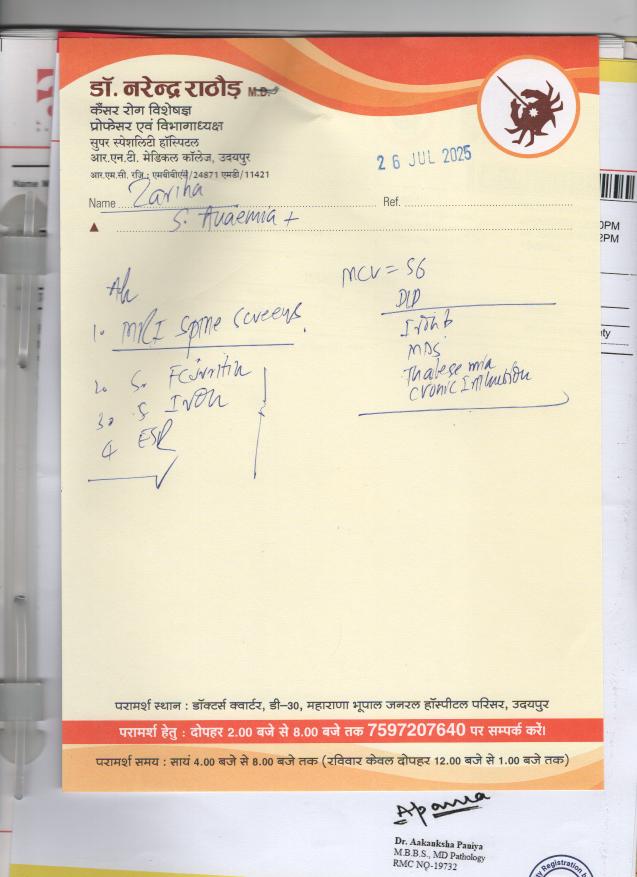 डॉ. नरेन्द्र राठौड़ M.D.
कैंसर रोग विशेषज्ञ
प्रोफेसर एवं विभागाध्यक्ष
सुपर स्पेशलिटी हॉस्पिटल
आर.एन.टी. मेडिकल कॉलेज, उदयपुर
आर.एम.सी. रजि.: एमबीबीएस/24871 एमडी/11421
26 JUL 2025
Name Zariha
Ref.
S. Anaemia +
MCV = 56
1. MRI Spine Screens
2. S. Ferritin
3. S Iron
4 ESR
Iron
MDS
Thalesemia
Cronic
परामर्श स्थान : डॉक्टर्स क्वार्टर, डी–30, महाराणा भूपाल जनरल हॉस्पीटल परिसर, उदयपुर
परामर्श हेतु : दोपहर 2.00 बजे से 8.00 बजे तक 7597207640 पर सम्पर्क करें।
परामर्श समय : सायं 4.00 बजे से 8.00 बजे तक (रविवार केवल दोपहर 12.00 बजे से 1.00 बजे तक)
Dr. Aakanksha Paniya
M.B.B.S., MD Pathology
RMC NO-19732